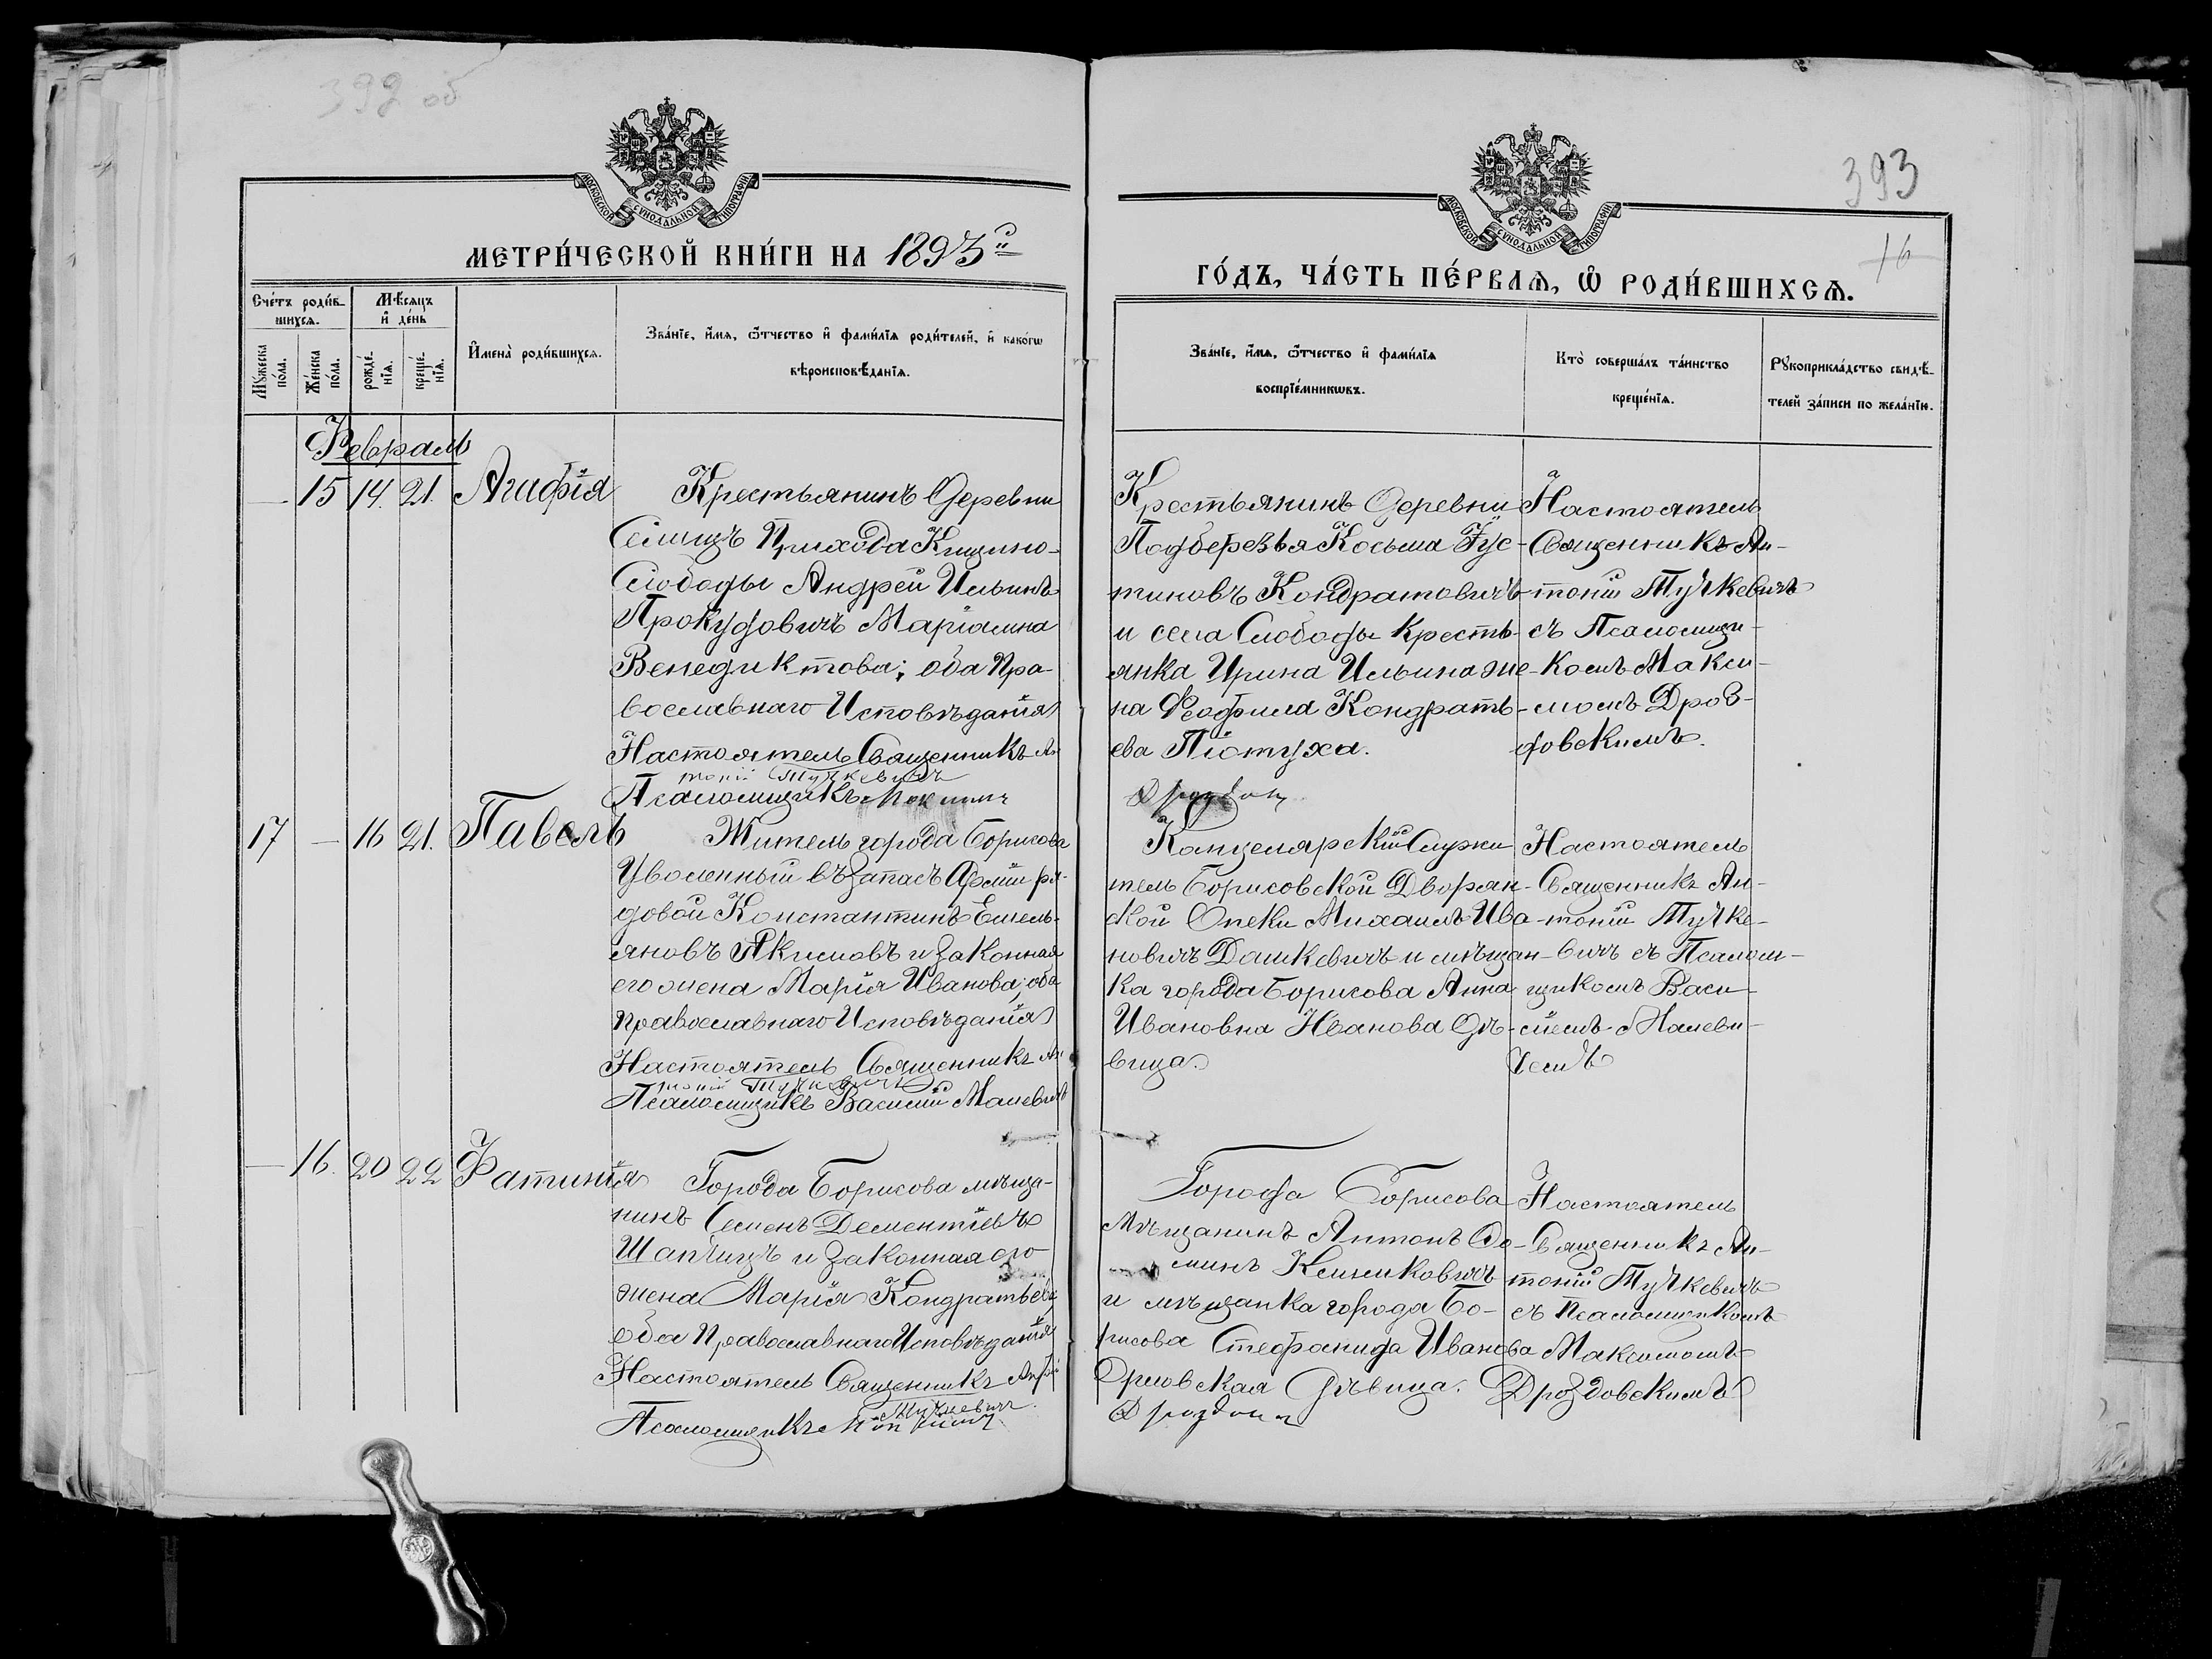 392 об
393
16
МОСКОВСКОЙ СУНОДАЛЬНОЙ ТИПОГРАФІИ
МЕТРИ́ЧЕСКОЙ КНИ́ГИ НА 1893й
Сче́тъ роди́в-
шихся.
Мѣ́сяцъ
и҆ де́нь
Мꙋ́жеска
по́ла.
Же́нска
по́ла.
рожде́-
нїѧ.
креще́-
нїѧ.
И҆мена̀ роди́вшихсѧ.
Зва́нїе, и҆́мѧ, ѻ҆́тчество и҆ фами́лїѧ роди́телей, и҆ како́гѡ
вѣроисповѣ́данїѧ.
Февраль
— 15 14. 21. Агафія
Крестьянинъ деревни
Селищъ Прихода Кищино-
Слободы Андрей Ильинъ
Прокудовичъ Маріамна
Венедиктова; оба Пра-
вославнаго Исповѣданія
Настоятель Священникъ Ан
тоній Тучкевичъ
Псаломщикъ Максимъ
17 — 16 21. Павелъ
Житель города Борисова
Уволенный въ запасъ Арміи ря-
довой Константинъ Емель-
яновъ Якимовъ и законная
его жена Марія Иванова; оба
Православнаго Исповѣданія
Настоятель Священникъ Ан
тоній Тучкевичъ
Псаломщикъ Василій Малевичъ
— 16. 20 22 Фатинія
Города Борисова мѣща-
нинъ Семенъ Дементіевъ
Шапчицъ и законная его
жена Марія Кондратьева
оба Православнаго Исповѣданія
Настоятель Священникъ
Тучкевичъ
Псаломщикъ
МОСКОВСКОЙ СУНОДАЛЬНОЙ ТИПОГРАФІИ
ГО́ДЪ, ЧА́СТЬ ПЕ́РВАѦ, Ѡ҆ РОДИ́ВШИХСѦ.
Зва́нїе, и҆́мѧ, ѻ҆́тчество и҆ фами́лїѧ
воспрїе́мникѡвъ.
Кто̀ соверша́лъ та́инство
креще́нїѧ.
Рꙋкоприкла́дство свидѣ́-
телей за́писи по жела́нїю.
Крестьянинъ деревни
Подберезья Косьма Іус-
тиновъ Кондратовичъ
и села Слободы кресть-
янка Ирина Ильина же-
на Феофила Кондрать-
ева Пѣтуха.
Настоятель
Священникъ Ан-
тоній Тучкевичъ
съ Псаломщи-
комъ Макси-
момъ Дроз-
довскимъ.
Канцелярскій Служи
тель Борисовской Дворян-
ской Опеки Михаилъ Ива-
новичъ Дашкевичъ и мѣщан-
ка города Борисова Анна
Ивановна Иванова дѣ-
вица.
Настоятель
Священникъ Ан-
тоній Тучке-
вичъ съ Псалом-
щикомъ Васи-
ліемъ Малеви-
чемъ
Города Борисова
Мѣщанинъ Антонъ Фо-
минъ Климковичъ
и мѣщанка города Бо-
рисова Стефанида Иванова
Орловская дѣвица.
Настоятель
Священникъ Ан-
тоній Тучкевичъ
съ Псаломщикомъ
Максимомъ
Дроздовскимъ